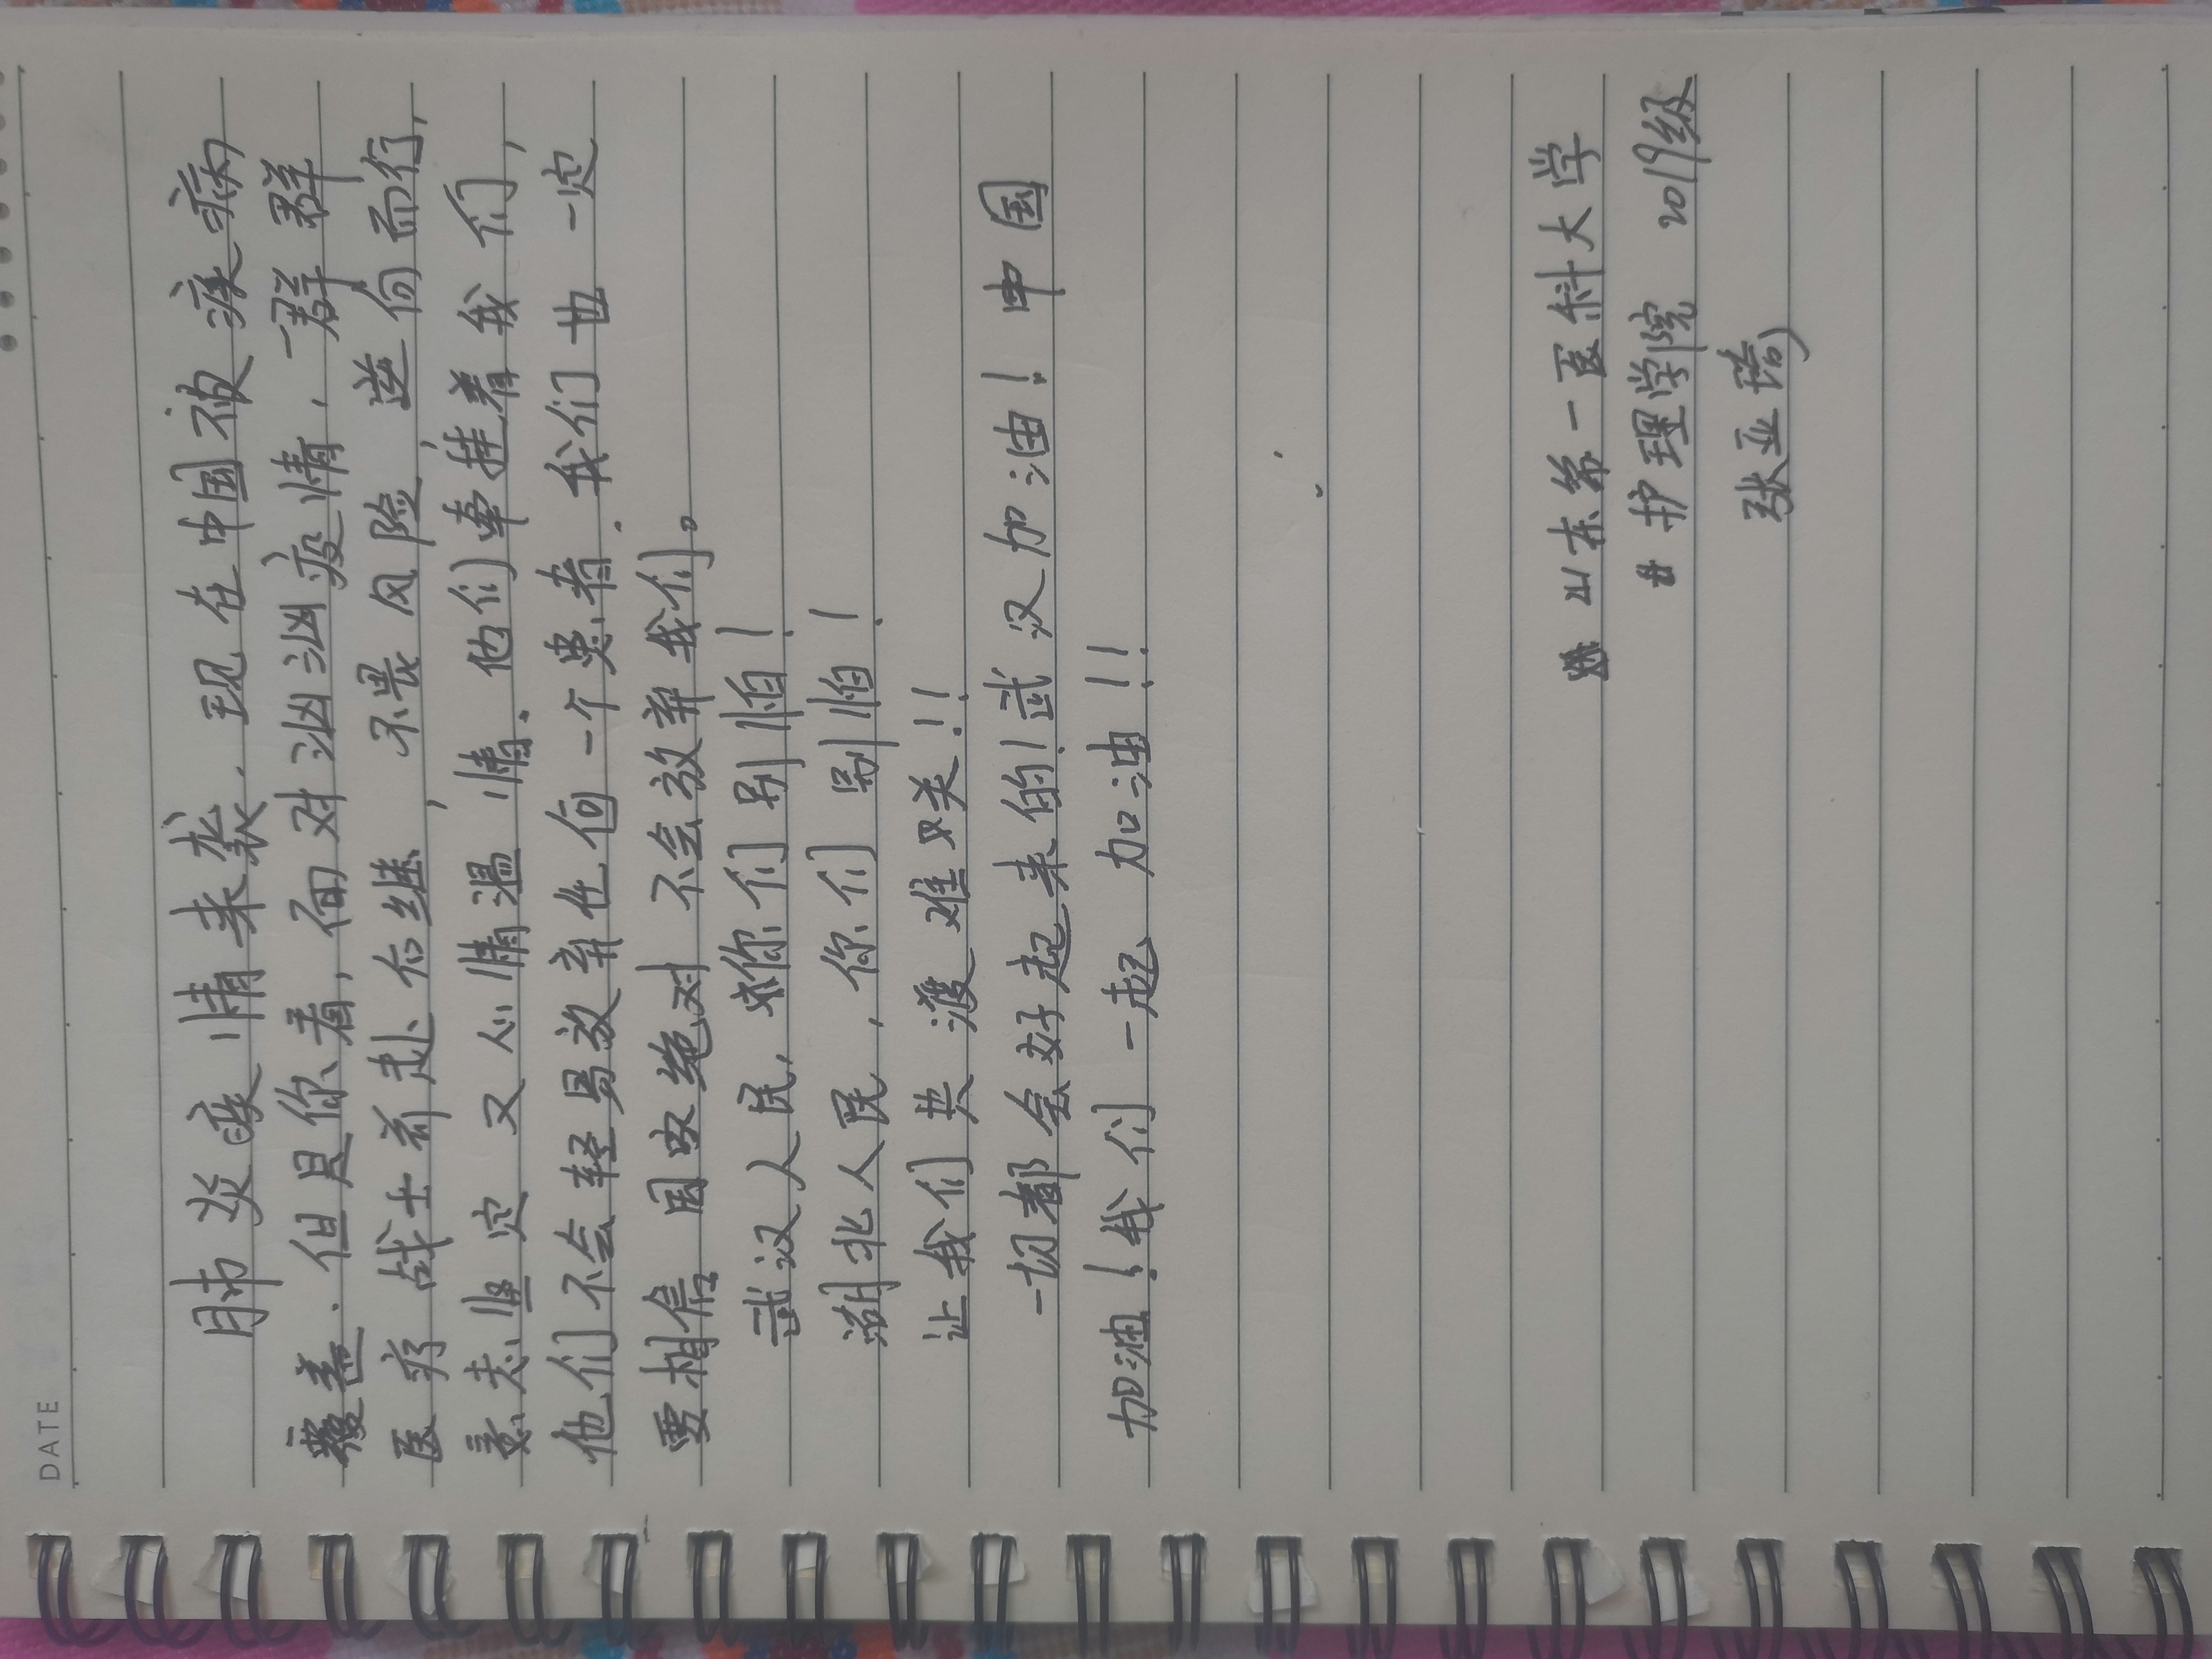 DATE
肺炎疫情来袭.现在中国被疾病
覆盖.但是你看,面对汹汹疫情,一群群
医疗战士前赴后继,不畏风险,逆向而行,
意志坚定又心情温情.他们牵挂着我们,
他们不会轻易放弃任何一个患者.我们也一定
要相信国家绝对不会放弃我们。
武汉人民,你们别怕!
湖北人民,你们别怕!
让我们共渡难关!!
一切都会好起来的!武汉加油!中国
加油!我们一起加油!!
山东第一医科大学
护理学院 2019级
张亚琦